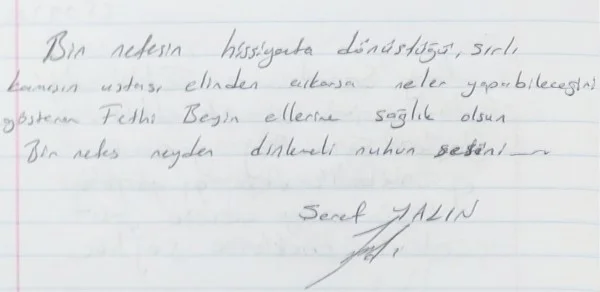 Bir nefesin hissiyata dönüştüğü, sırlı
kamışın ustası elinden çıkarsa neler yapabileceğini
gösteren Fethi Beyin ellerine sağlık olsun
Bir nefes neyden dinlemeli ruhun sesini
Şeref YALIN